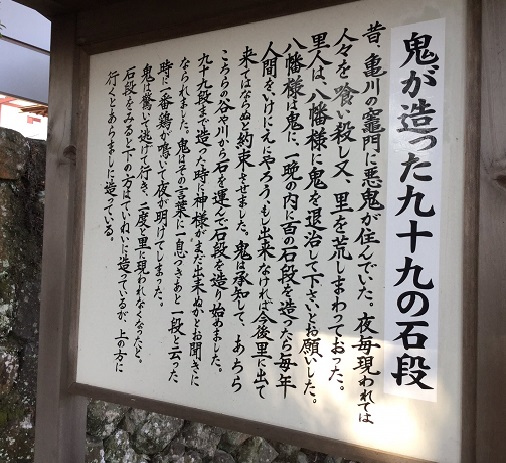 鬼が造った九十九の石段
昔、亀川の竈門に悪鬼が住んでいた。夜毎現われては
人々を喰い殺し又、里を荒しまわっておった。
里人は、八幡様に鬼を退治して下さいとお願いした。
八幡様は鬼に、一晩の内に百の石段を造ったら毎年
人間を、いけにえにやろう、もし出来なければ今後里に出て
来てはならぬと約束させました。鬼は承知して、あちら
こちらの谷や川から石を運んで石段を造り始めました。
九十九段まで造った時に神様が、まだ出来ぬかとお聞きに
なられました。鬼はその言葉に一息つきあと一段と云った
時に一番鶏が鳴いて夜が明けてしまった。
鬼は驚いて逃げて行き、二度と里に現われなくなったと。
石段をみると下の方はていねいに造っているが、上の方に
行くとあらましに造っている。